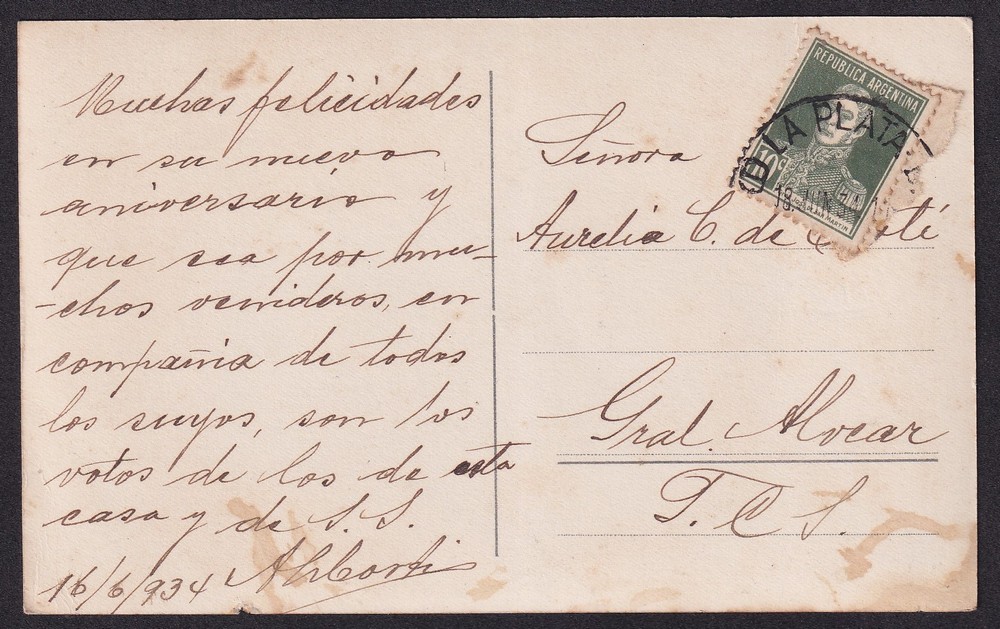 Muchas felicidades
en su nuevo
aniversario y
que sea por mu-
-chos venideros, en
compañia de todos
los suyos, son los
votos de los de esta
casa y de S.S.
16/6/934
REPUBLICA ARGENTINA
10c
LA PLATA
18 JUN
Señora
Aurelia C. de
Gral. Alvear
F.C.S.